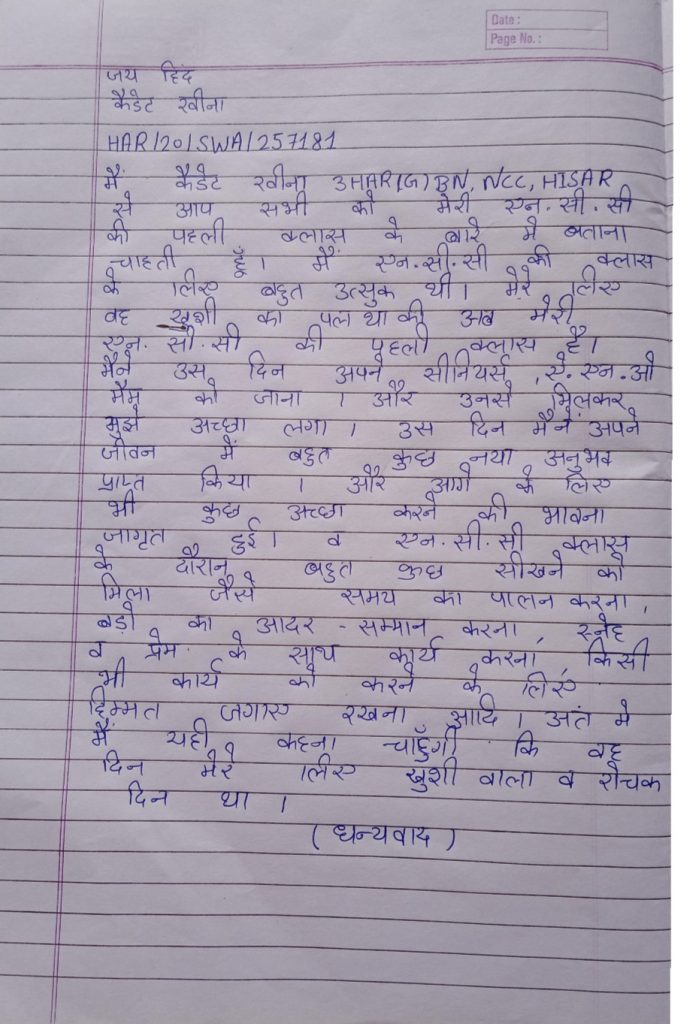 Date :
Page No. :
जय हिंद
कैडेट रवीना
HAR/20/SWA/257181
मैं कैडेट रवीना 3HAR(G) BN, NCC, HISAR
से आप सभी को मेरी एन.सी.सी
की पहली क्लास के बारे मे बताना
चाहती हूँ। मैं एन.सी.सी की क्लास
के लिए बहुत उत्सुक थी। मेरे लिए
वह खुशी का पल था की अब मेरी
एन.सी.सी की पहली क्लास है।
मैने उस दिन अपने सीनियर्स, ऐ.एन.ओ
मैम को जाना । और उनसे मिलकर
मुझे अच्छा लगा । उस दिन मैने अपने
जीवन में बहुत कुछ नया अनुभव
प्राप्त किया । और आगे के लिए
भी कुछ अच्छा करने की भावना
जागृत हुई। व एन.सी.सी क्लास
के दौरान बहुत कुछ सीखने को
मिला जैसे समय का पालन करना,
बड़ो का आदर - सम्मान करना, स्नेह
व प्रेम के साथ कार्य करना, किसी
भी कार्य को करने के लिए
हिम्मत जगाए रखना आदि । अंत मे
मैं यही कहना चाहुँगी कि वह
दिन मेरे लिए खुशी वाला व रोचक
दिन था ।
(धन्यवाद)